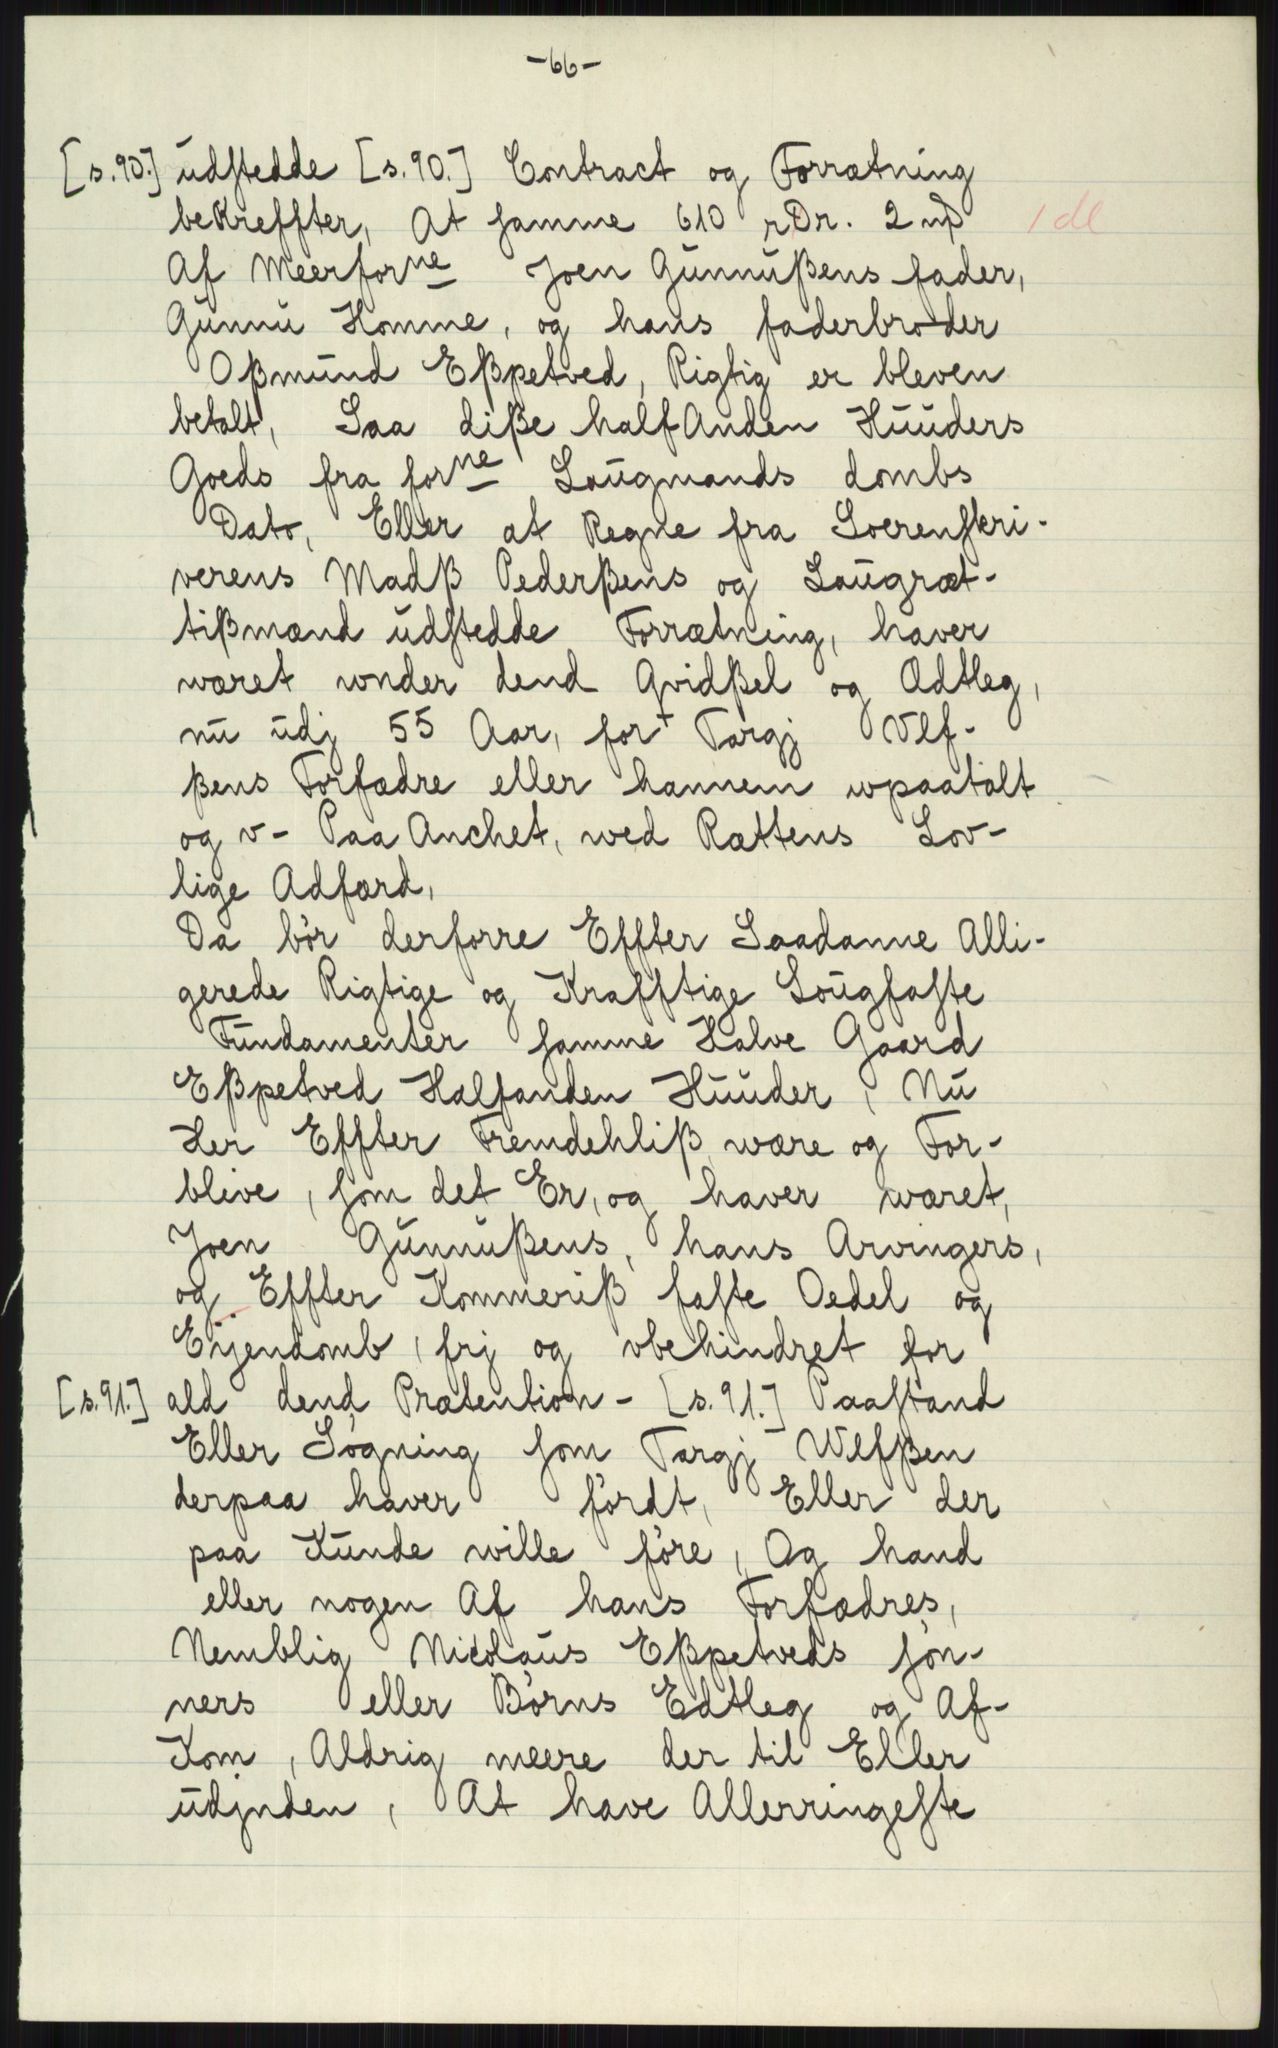 -66-
[s.90.] udstedde [s.90.] Contract og Forrætning
bekreffter, At samme 610 rDr. 2 mƒ 1 dl
Af Meerforne Joen Gunnußens fader,
Gunnu Homme, og hans faderbroder
Oßmund Eßpetved, Rigtig er bleven
betalt, Saa diße half Anden Huuders
Goeds fra forne Laugmands dombs
Dato, Eller at Regne fra Soerenskri-
verens Madß Pederßens og Laugræt-
tißmænd udstedde Forrætning, haver
wæret wnder dend Qvidßel og Ædtleg,
nu udj 55 Aar, for Targj Vlf-
ßens Forfædre eller hannem wpaatalt
og v- Paa Anchet, wed Rættens Lov-
lige Adfærd,
Da bör derforre Effter Saadanne Alli-
gerede Rigtige og Krafftige Lougfaste
Fundamenter samme Halve Gaard
Eßpetved Halfanden Huuder, Nu
Her Effter Fremdehliß være og For-
blive, som det Er, og haver wæret,
Joen Gunnußens, hans Arvingers,
og Effter Kommeriß faste Oedel og
Eyendomb, frj og vbehindret for
[s.91.] ald dend Prætention- [s.91.] Paastand
Eller Sögning som Targj Wlfßen
derpaa haver fördt, Eller der
paa Kunde wille före, Og hand
eller nogen Af hans Forfædres,
Nemblig Nicolaus Eßpetveds sön-
ners eller Börns Edtleg og Af-
Kom, Aldrig meere der til Eller
udjnden, At have Allerringeste